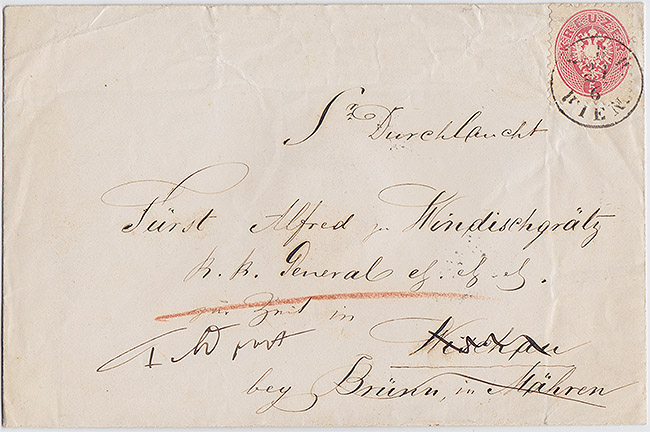 KREUZER
WIEN
Sr Durchlaucht
Fürst Alfred zu Windischgrätz
k. k. General etc. etc. etc.
zur Zeit in
Wischau
bey Brünn, in Mähren